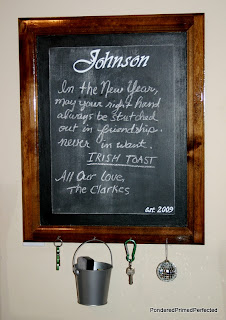 Johnson
In the New Year,
may your right hand
always be stretched
out in friendship.
never in want.
IRISH TOAST
All Our Love,
The Clarkes
est. 2009
PonderedPrimedPerfected